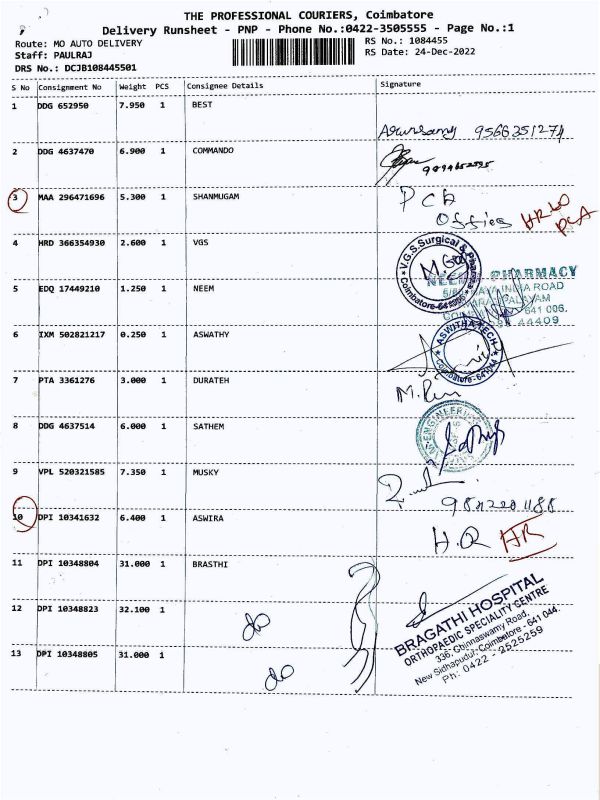 THE PROFESSIONAL COURIERS, Coimbatore
Delivery Runsheet - PNP - Phone No.:0422-3505555 - Page No.:1
Route: MO AUTO DELIVERY
RS No.: 1084455
Staff: PAULRAJ
RS Date: 24-Dec-2022
DRS No.: DCJB108445501
S No Consignment No Weight PCS Consignee Details Signature
1 DDG 652950 7.950 1 BEST
9566351274
2 DDG 4637470 6.900 1 COMMANDO
3 MAA 296471696 5.300 1 SHANMUGAM
4 HRD 366354930 2.600 1 VGS
V.G.S.Surgical &
Coimbatore
PHARMACY
INDIA ROAD
641 006.
44409
5 EDQ 17449210 1.250 1 NEEM
6 IXM 502821217 0.250 1 ASWATHY
ASWITHA TECH
Coimbatore-641044
7 PTA 3361276 3.000 1 DURATEH
8 DDG 4637514 6.000 1 SATHEM
9 VPL 520321585 7.350 1 MUSKY
10 DPI 10341632 6.400 1 ASWIRA
H.Q HR
11 DPI 10348804 31.000 1 BRASTHI
12 DPI 10348823 32.100 1
do
13 DPI 10348805 31.000 1
do
BRAGATHI HOSPITAL
ORTHOPAEDIC SPECIALITY CENTRE
336, Chinnaswamy Road,
New Sidhapudur, Coimbatore - 641 044.
Ph: 0422 - 2525259